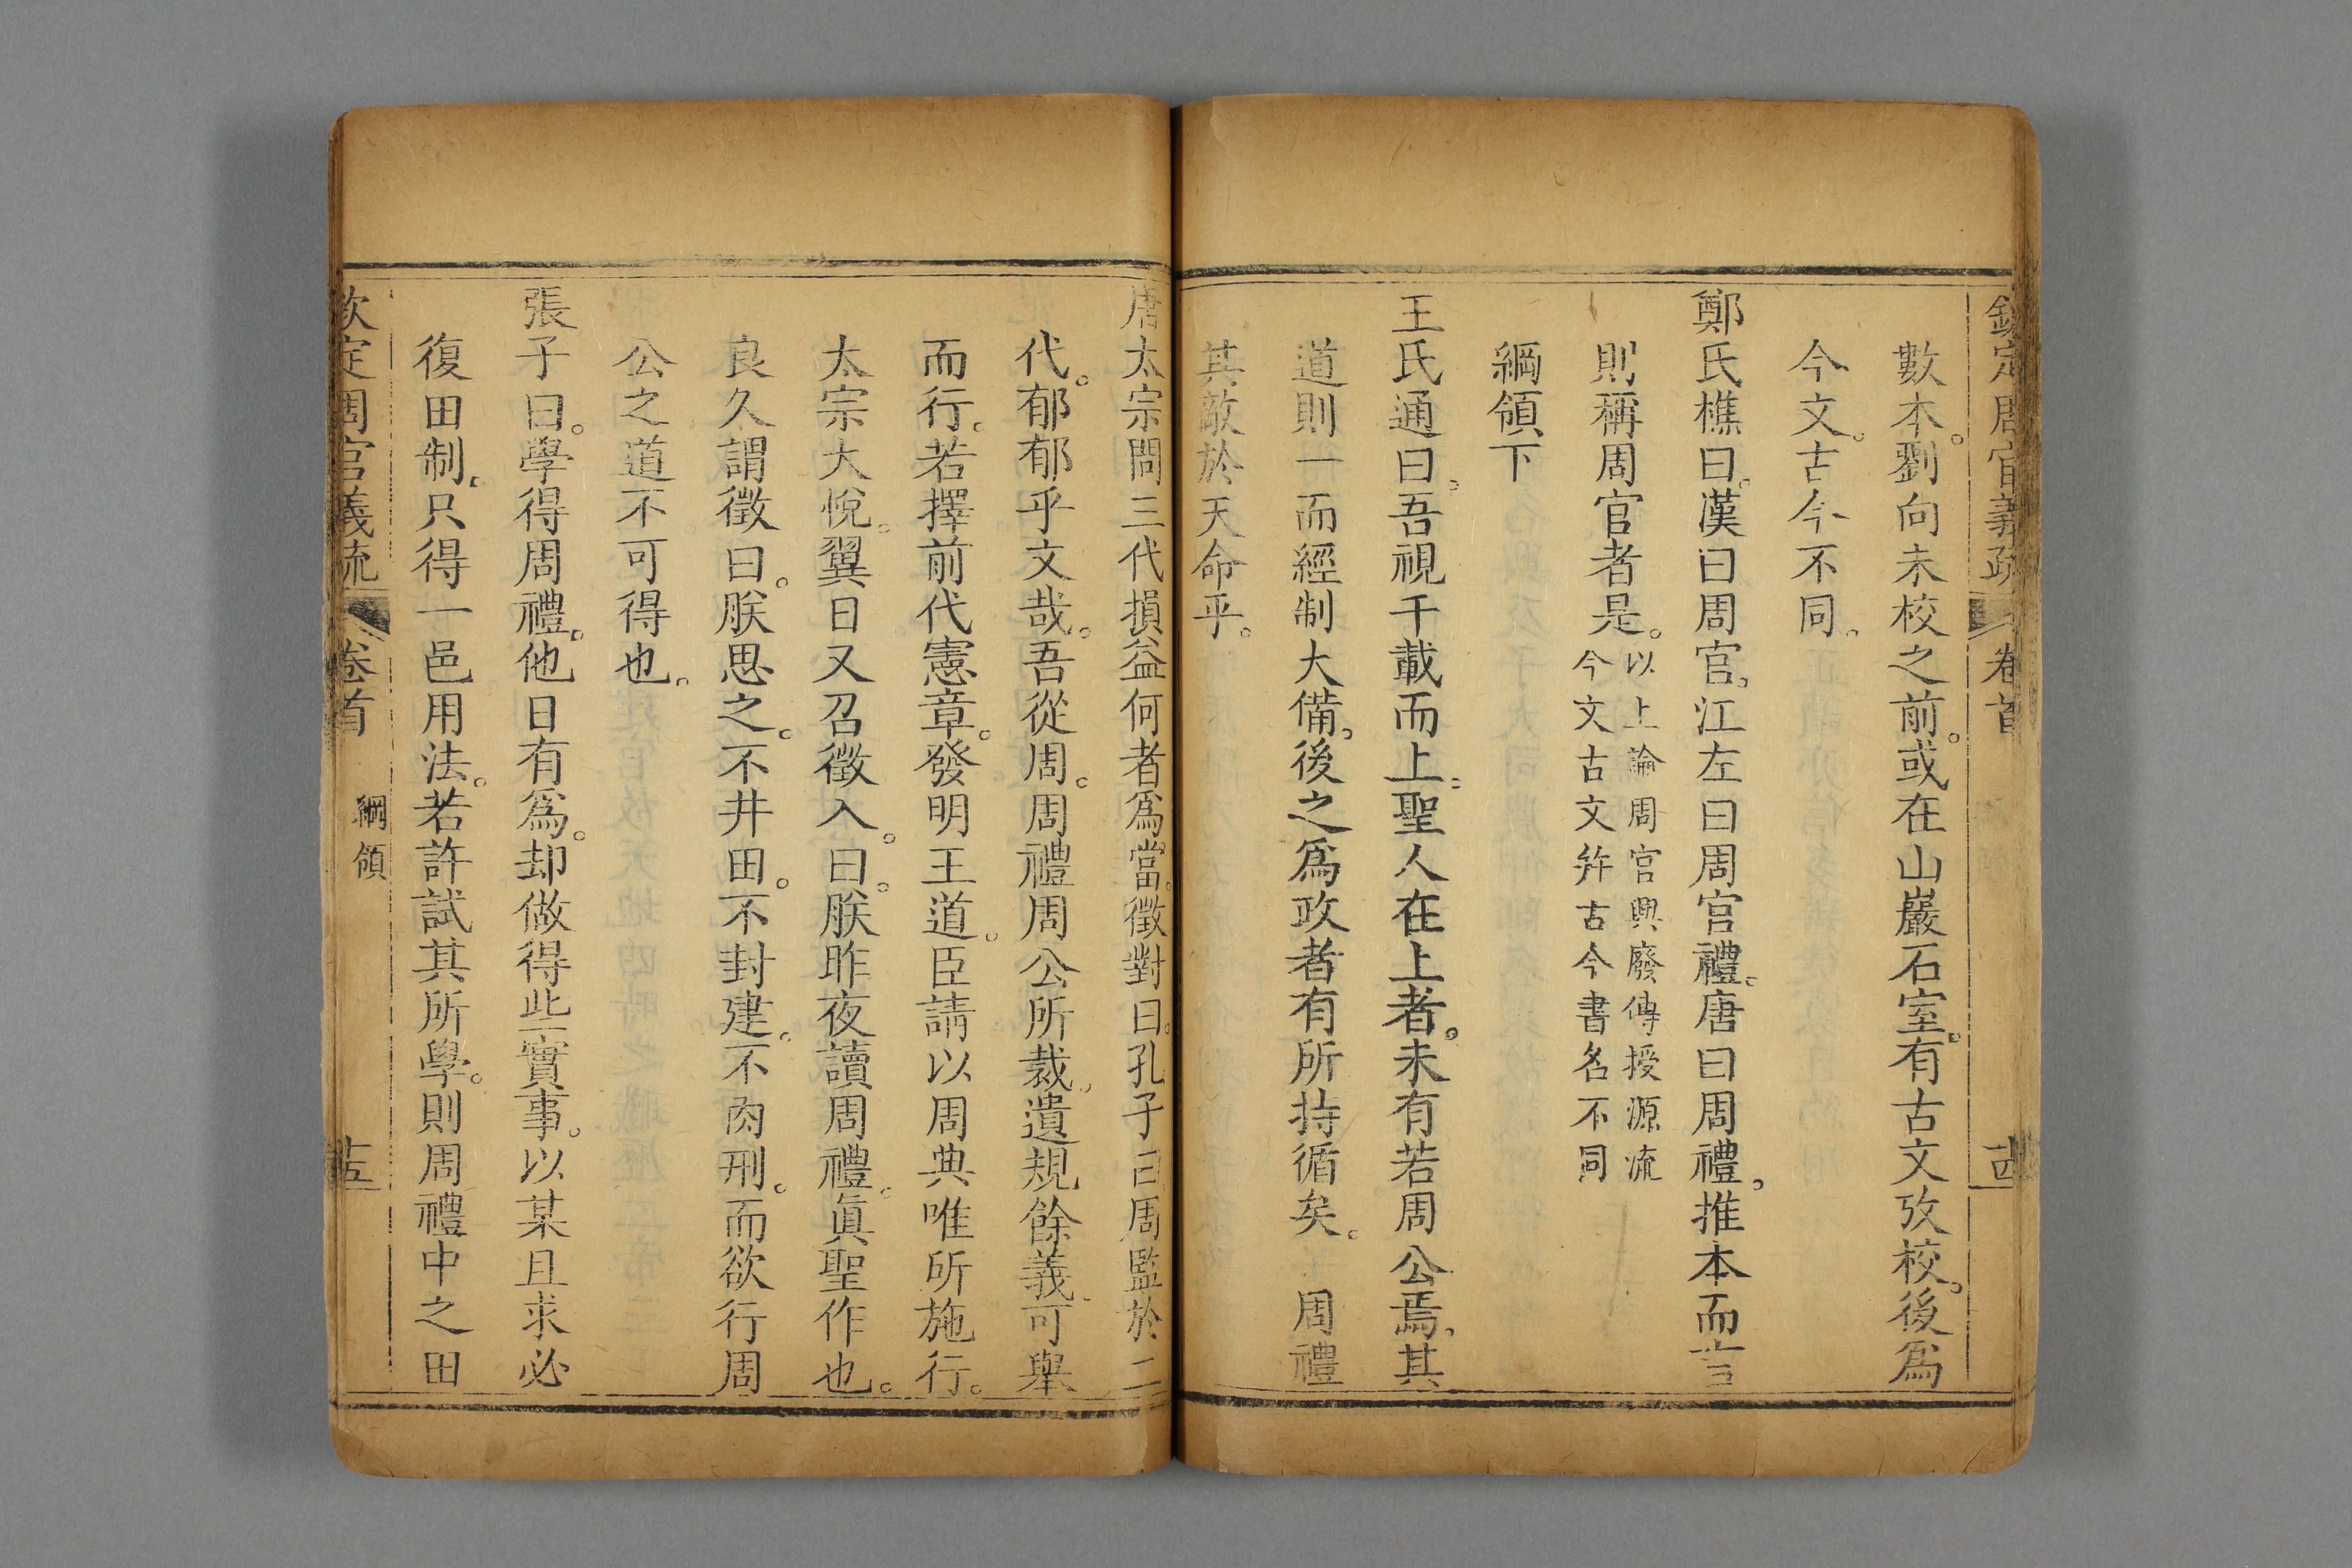 欽定周官義疏 卷首 十四
數本。劉向未校之前。或在山巖石室。有古文攷校。後爲
今文。古今不同。
鄭氏樵曰。漢曰周官。江左曰周官禮。唐曰周禮。推本而言
則稱周官者是。以上論周官興廢傳授源流
今文古文幷古今書名不同
綱領下
王氏通曰。吾視千載而上。聖人在上者。未有若周公焉。其
道則一而經制大備。後之爲政者有所持循矣。 周禮
其敵於天命乎。
唐太宗問三代損益何者爲當。徵對曰。孔子曰周監於二
代。郁郁乎文哉。吾從周。周禮周公所裁。遺規餘義。可舉
而行。若擇前代憲章。發明王道。臣請以周典唯所施行。
太宗大悅。翼日又召徵入。曰。朕昨夜讀周禮。眞聖作也。
良久謂徵曰。朕思之。不井田。不封建。不肉刑。而欲行周
公之道不可得也。
張子曰。學得周禮。他日有爲。却做得些實事。以某且求必
復田制。只得一邑用法。若許試其所學。則周禮中之田
欽定周官義疏 卷首 綱領 十五